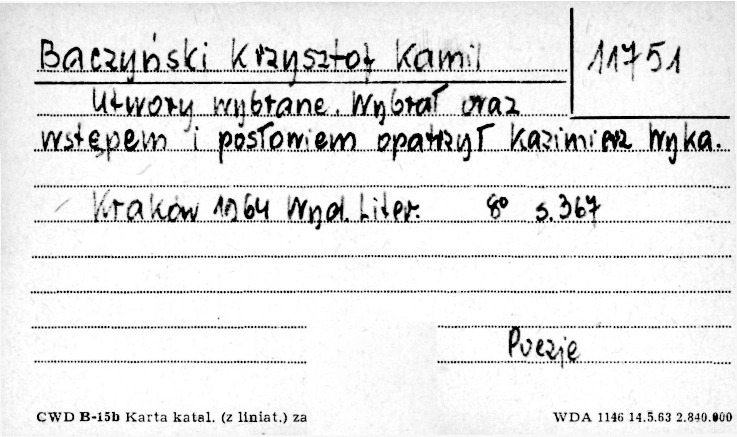 Baczyński Krzysztof Kamil
11751
Utwory wybrane. Wybrał oraz
wstępem i posłowiem opatrzył Kazimierz Wyka.
Kraków 1964 Wyd. Liter. 8° s. 367
Poezje
CWD B-15b Karta katal. (z liniat.) za
WDA 1146 14.5.63 2.840.000